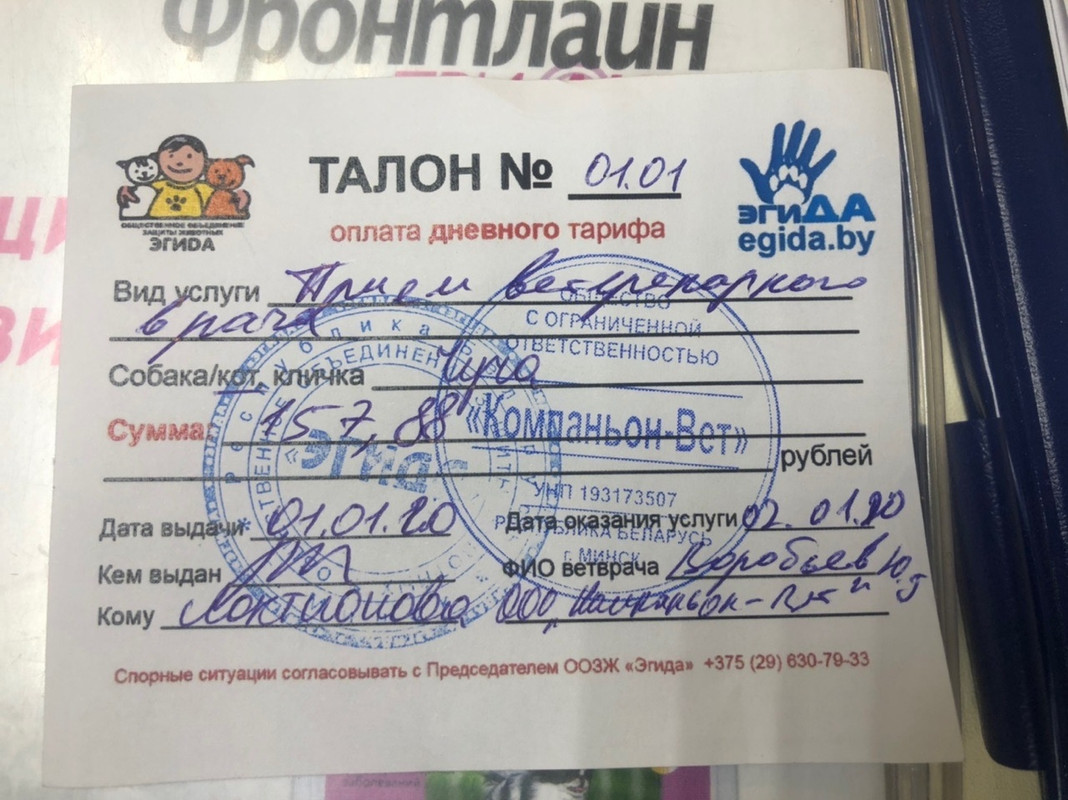 Фронтлайн
ОБЩЕСТВЕННОЕ ОБЪЕДИНЕНИЕ
ЗАЩИТЫ ЖИВОТНЫХ
ЭГИДА
ТАЛОН № 01.01
оплата дневного тарифа
эгиДА
egida.by
Вид услуги Прием ветеренарного
врача
Собака/кот, кличка Чуча
Сумма 157,88
рублей
Дата выдачи 01.01.20 Дата оказания услуги 02.01.20
Кем выдан ФИО ветврача Воробьев Ю.
Кому Локтионова ООО "Компаньон-Вет"
ОБЩЕСТВО
С ОГРАНИЧЕННОЙ
ОТВЕТСТВЕННОСТЬЮ
«Компаньон-Вет»
УНП 193173507
РЕСПУБЛИКА БЕЛАРУСЬ
г. МИНСК
«Эгида
Спорные ситуации согласовывать с Председателем ООЗЖ «Эгида» +375 (29) 630-79-33
заболеваний